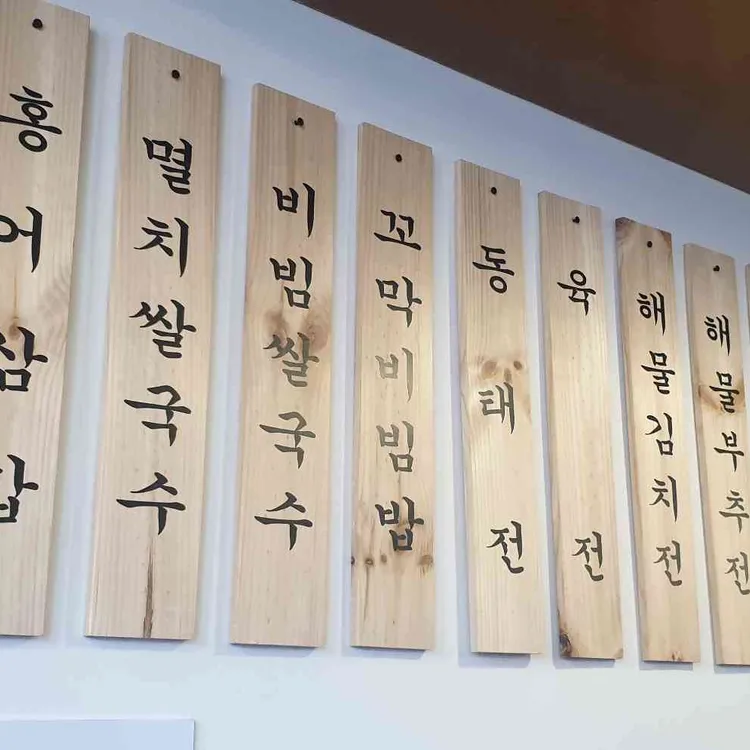 홍어삼합
멸치쌀국수
비빔쌀국수
꼬막비빔밥
동태전
육전
해물김치전
해물부추전